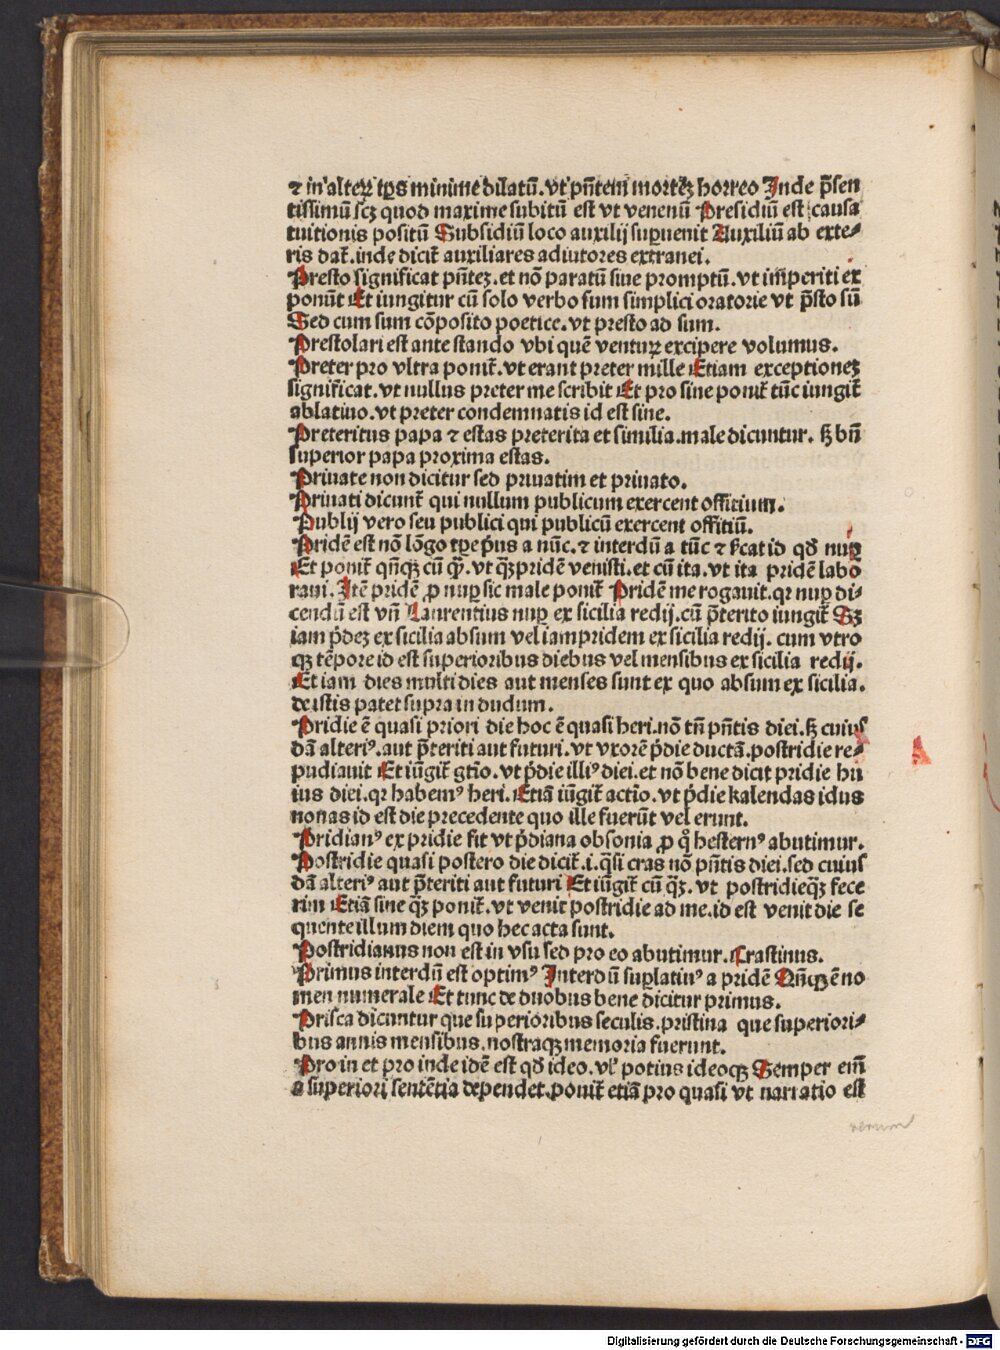 ⁊ in alteꝝ tp̄s minime dilatū.vt pn̄tem mortēꝫ horreo Inde p̄sen
tissimū scꝫ quod maxime subitū est vt venenū Presidiū est causa
tuitionis positū Subsidiū loco auxilij suꝑuenit Auxiliū ab exte⸗
ris dat̄.inde dicit̄ auxiliares adiutores extranei.
Presto significat pn̄teꝫ.et nō paratū siue promptū.vt imperiti ex
ponūt Et iungitur cū solo verbo sum simplici oratorie vt p̄sto sū
Sed cum sum cōposito poetice.vt presto ad sum.
Prestolari est ante stando vbi quē ventuꝝ excipere volumus.
Preter pro vltra ponit̄.vt erant preter mille Etiam exceptioneꝫ
significat.vt nullus preter me scribit Et pro sine ponit̄ tūc iungit̄
ablatiuo.vt preter condemnatis id est sine.
Preteritus papa ⁊ estas preterita et similia.male dicuntur. sꝫ bn̄
superior papa proxima estas.
Priuate non dicitur sed priuatim et priuato.
Priuati dicunt̄ qui nullum publicum exercent offitium.
Publij vero seu publici qui publicū exercent offitiū.
Pridē est nō lōgo tꝑe p̄us a nūc.⁊ interdū a tūc ⁊ s̄icat id qd̄ nuꝑ
Et ponit̄ qn̄qꝫ cū qꝫ̄. vt qꝫ̄pridē venisti.et cū ita.vt ita pridē labo
raui. Itē pridē ꝓ nuꝑ sic male ponit̄ Pridē me rogauit.qꝛ nuꝑ di⸗
cendū est vn̄ Laurentius nuꝑ ex sicilia redij.cū p̄terito iungit̄ Sꝫ
iam p̄deꝫ ex sicilia absum vel iampridem ex sicilia redij. cum vtro
qꝫ tēpore id est superioribus diebus vel mensibus ex sicilia redij.
Et iam dies multi dies aut menses sunt ex quo absum ex sicilia.
de istis patet supra in dudum.
Pridie ē quasi priori die hoc ē quasi heri.nō tn̄ pn̄tis diei.sꝫ cuius
dā alteriꝰ.aut p̄teriti aut futuri.vt vxorē p̄die ductā.postridie re⸗
pudiauit Et iūgit̄ gtīo.vt p̄die illiꝰ diei.et nō bene dicit pridie hu
ius diei.qꝛ habemꝰ heri.Etiā iūgit̄ actīo.vt p̄die kalendas idus
nonas id est die precedente quo ille fuerūt vel erunt.
Pridianꝰ ex pridie fit vt p̄diana obsonia ꝓ qͦ hesternꝰ abutimur.
Postridie quasi postero die dicit̄.i.qͣsi cras nō pn̄tis diei.sed cuius
dā alteriꝰ aut p̄teriti aut futuri Et iūgit̄ cū qꝫ̄. vt postridieqꝫ̄ fece
rim Etiā sine qꝫ̄ ponit̄.vt venit postridie ad me.id est venit die se
quente illum diem quo hec acta sunt.
Postridianus non est in vsu sed pro eo abutimur.Crastinus.
Primus interdū est optimꝰ Interdū suꝑlatiuꝰ a pridē Qn̄qꝫ ē no
men numerale Et tunc de duobus bene dicitur primus.
Prisca dicuntur que superioribus seculis.pristina que superiori⸗
bus annis mensibus.nostraqꝫ memoria fuerunt.
Pro in et pro inde idē est qd̄ ideo.vl̓ potius ideoqꝫ Semper em̄
a superiori sentētia dependet.ponit̄ etiā pro quasi vt narratio est
verum
Digitalisierung gefördert durch die Deutsche Forschungsgemeinschaft - DFG